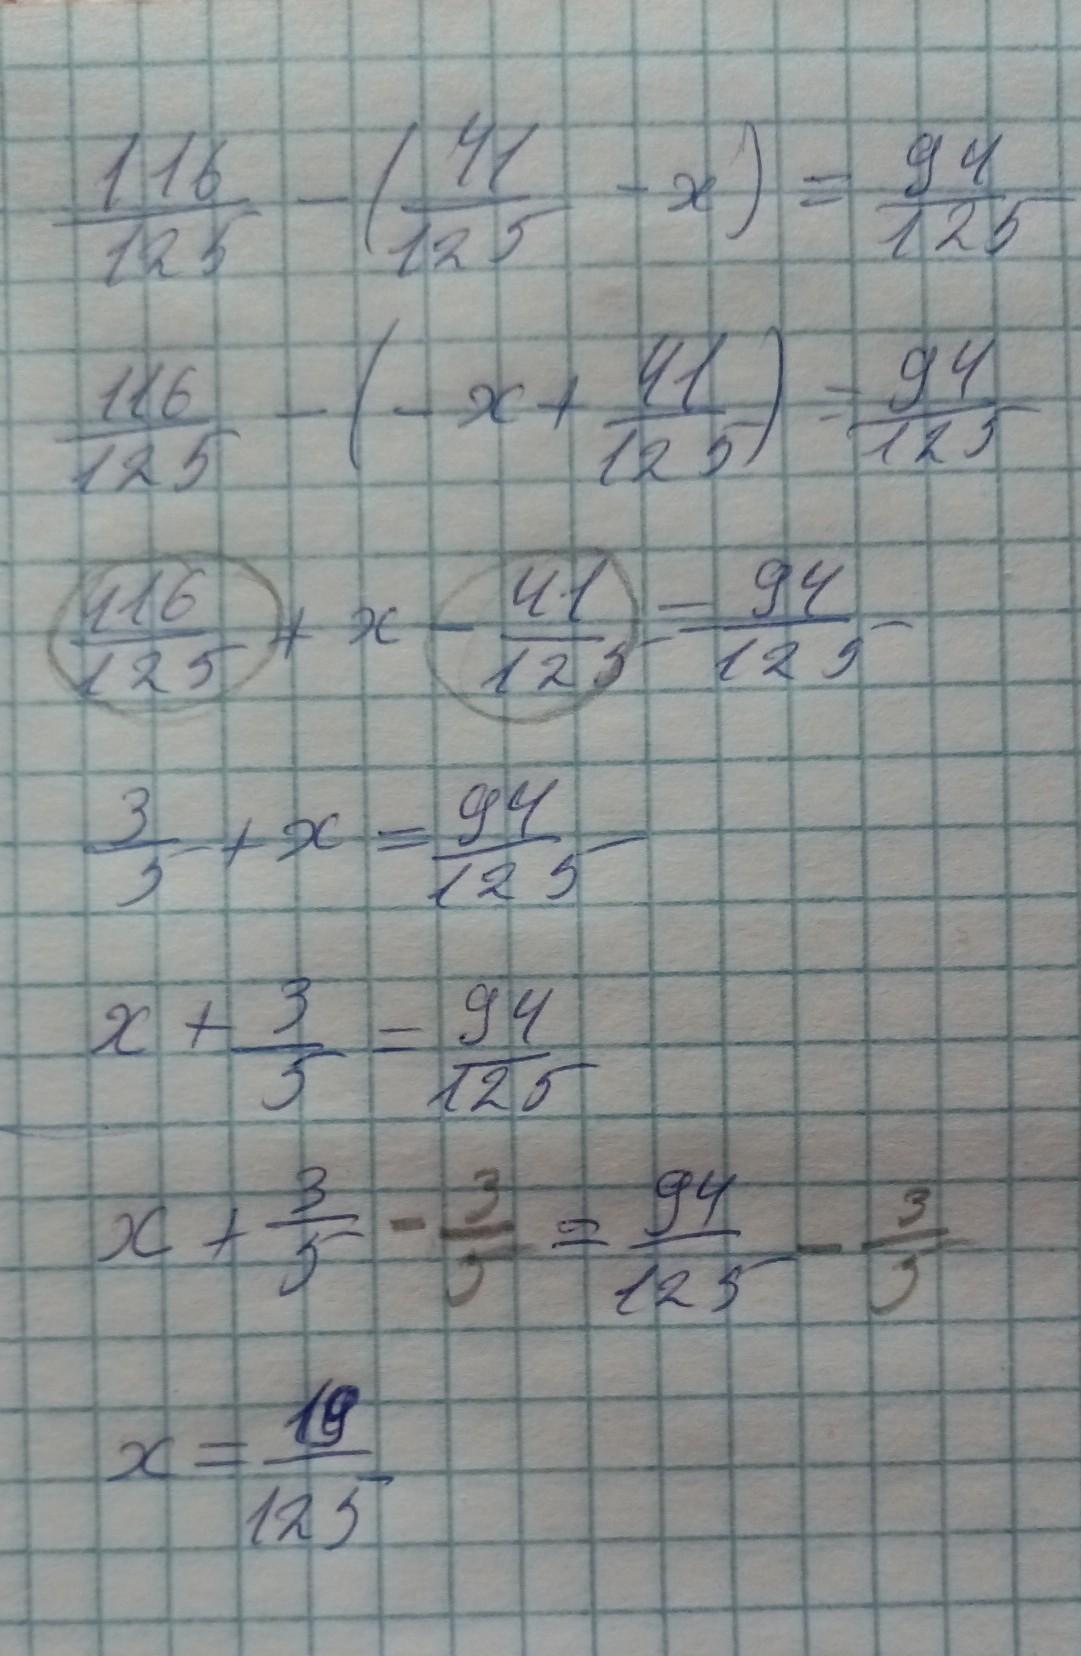 116/125 - (41/125 - x) = 94/125
116/125 - (- x + 41/125) = 94/125
116/125 + x - 41/125 = 94/125
3/5 + x = 94/125
x + 3/5 = 94/125
x + 3/5 - 3/5 = 94/125 - 3/5
x = 19/125